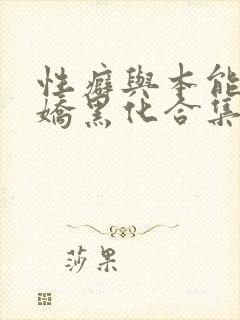 性癖與本能
嬌黑化合集
莎果